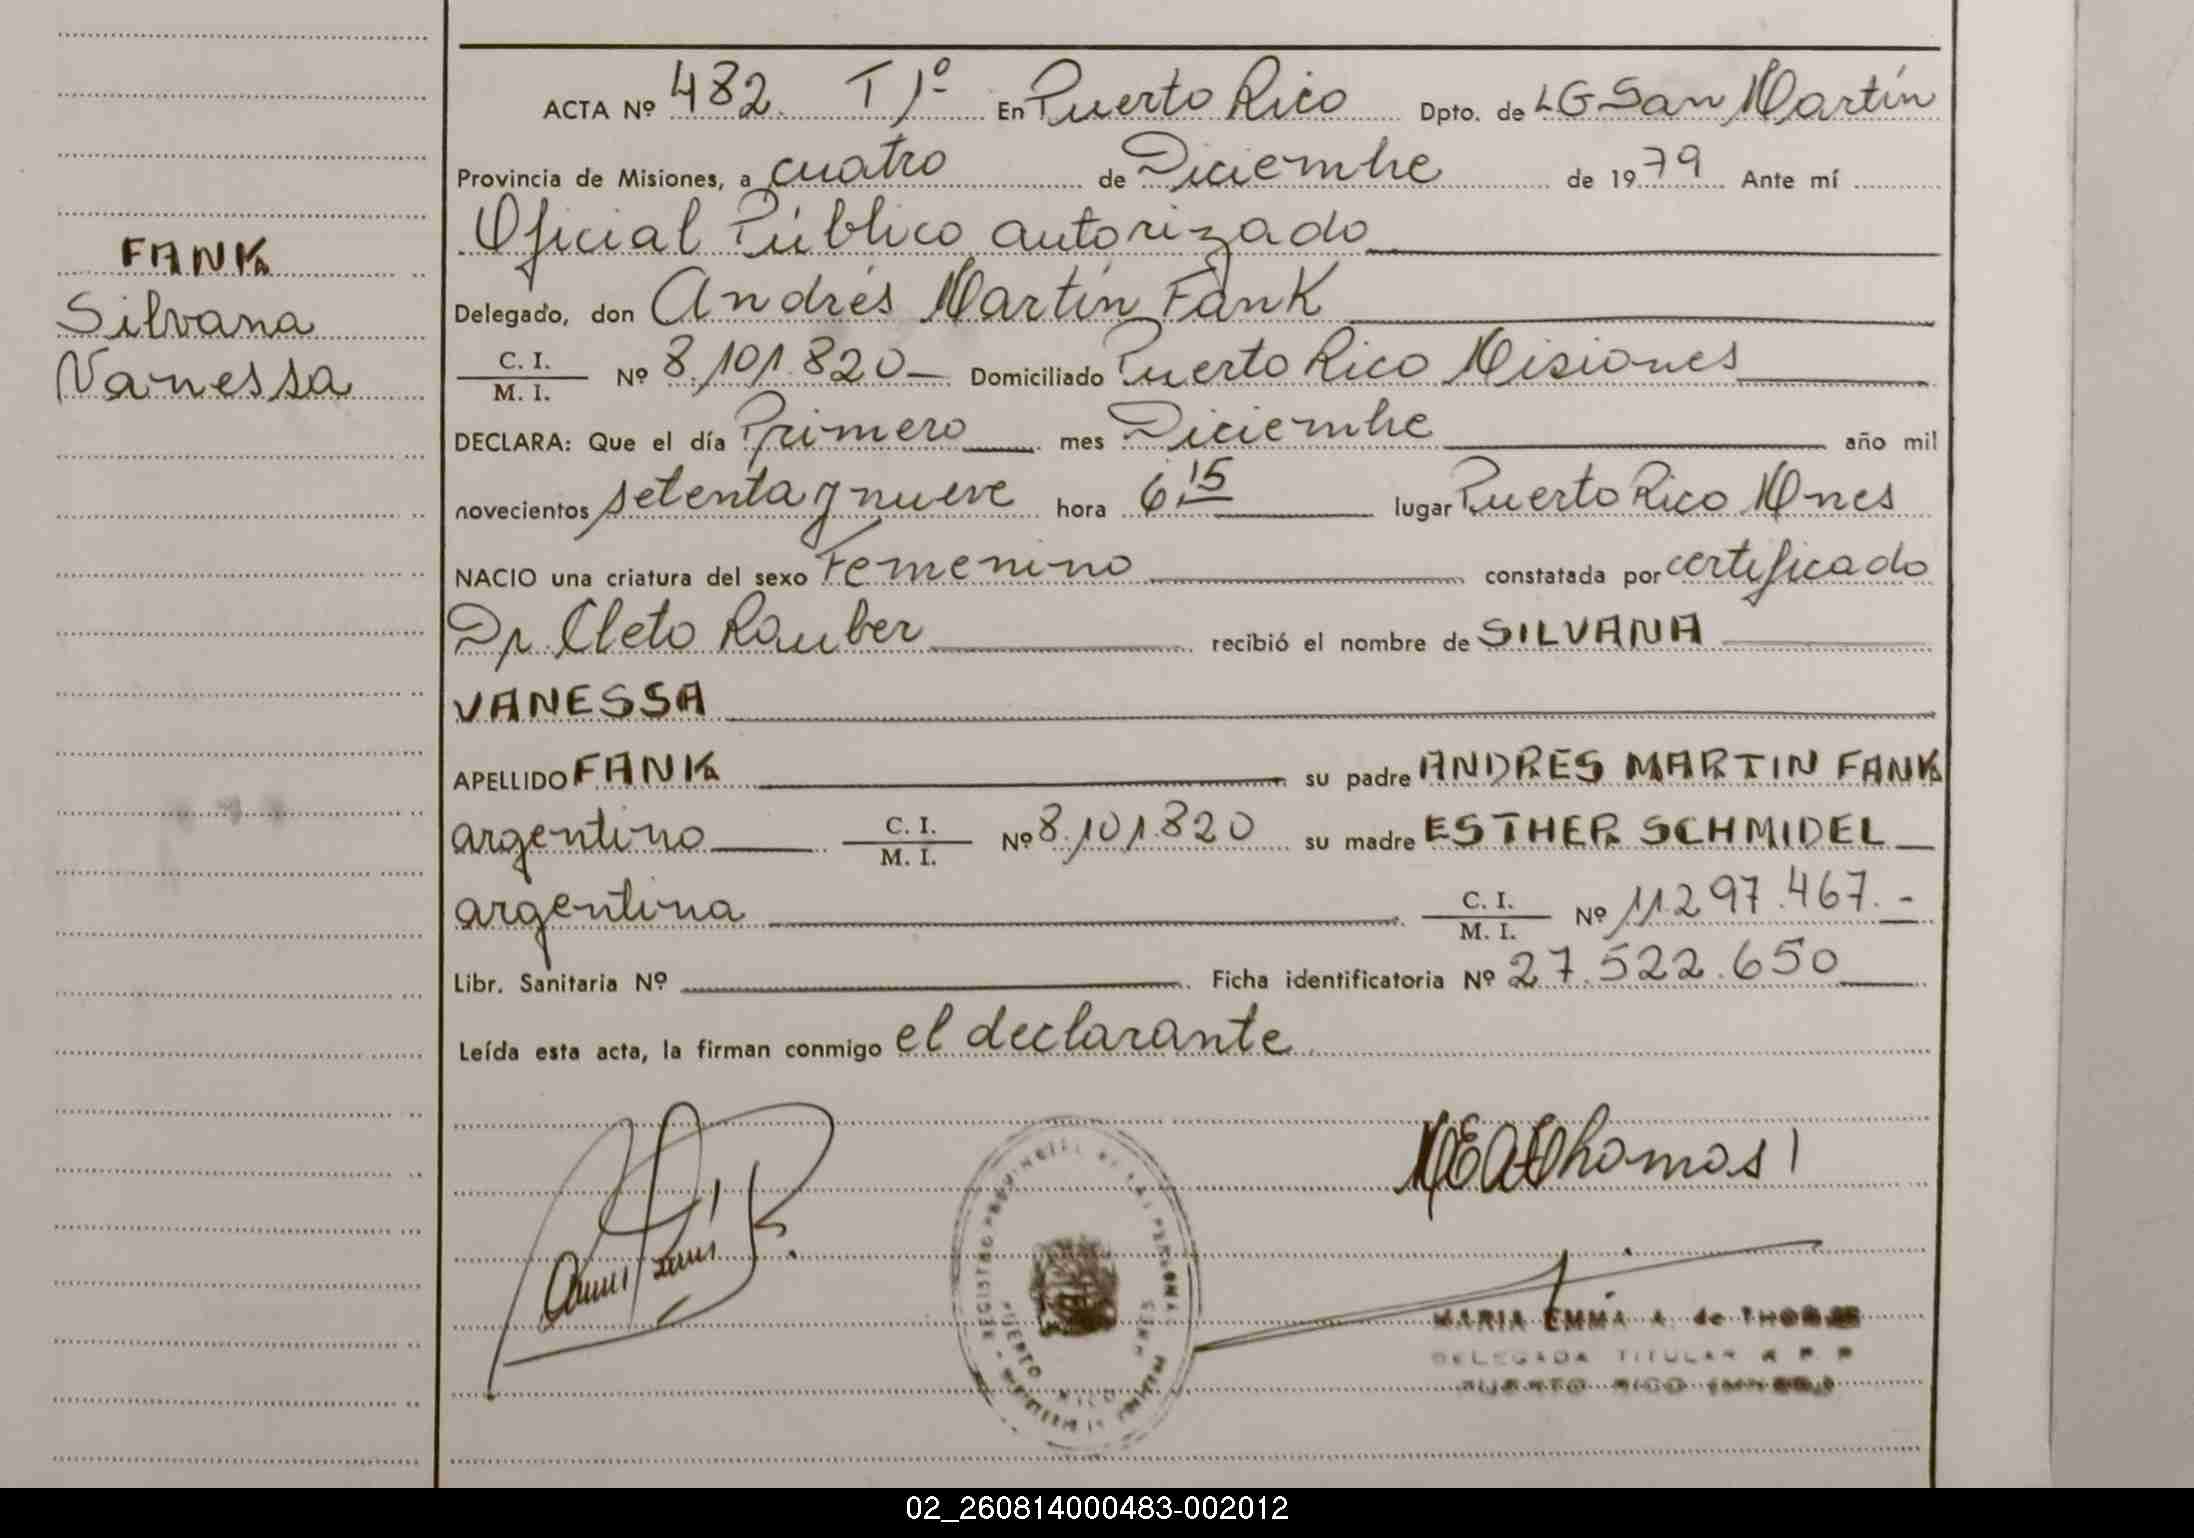 FANK
Silvana
Vanessa
ACTA Nº 482 T 1º En Puerto Rico Dpto. de LG San Martín
Provincia de Misiones, a cuatro de Diciembre de 1979 Ante mí
Oficial Público autorizado
Delegado, don Andrés Martín Fank
C. I.
M. I. Nº 8.101.820 Domiciliado Puerto Rico Misiones
DECLARA: Que el día Primero mes Diciembre año mil
novecientos setenta y nueve hora 6,15 lugar Puerto Rico Mnes
NACIO una criatura del sexo Femenino constatada por certificado
Dr. Cleto Rauber recibió el nombre de SILVANA
VANESSA
APELLIDO FANK su padre ANDRES MARTIN FANK
argentino C. I. M. I. Nº 8.101.820 su madre ESTHER SCHMIDEL
argentina C. I. M. I. Nº 11.297.467.-
Libr. Sanitaria Nº Ficha identificatoria Nº 27.522.650
Leída esta acta, la firman conmigo el declarante
MEAdThomas
REGISTRO PROVINCIAL DE LAS PERSONAS
PUERTO RICO
MARIA EMMA A. de THOMAS
DELEGADA TITULAR R. P. P.
PUERTO RICO
02_260814000483-002012